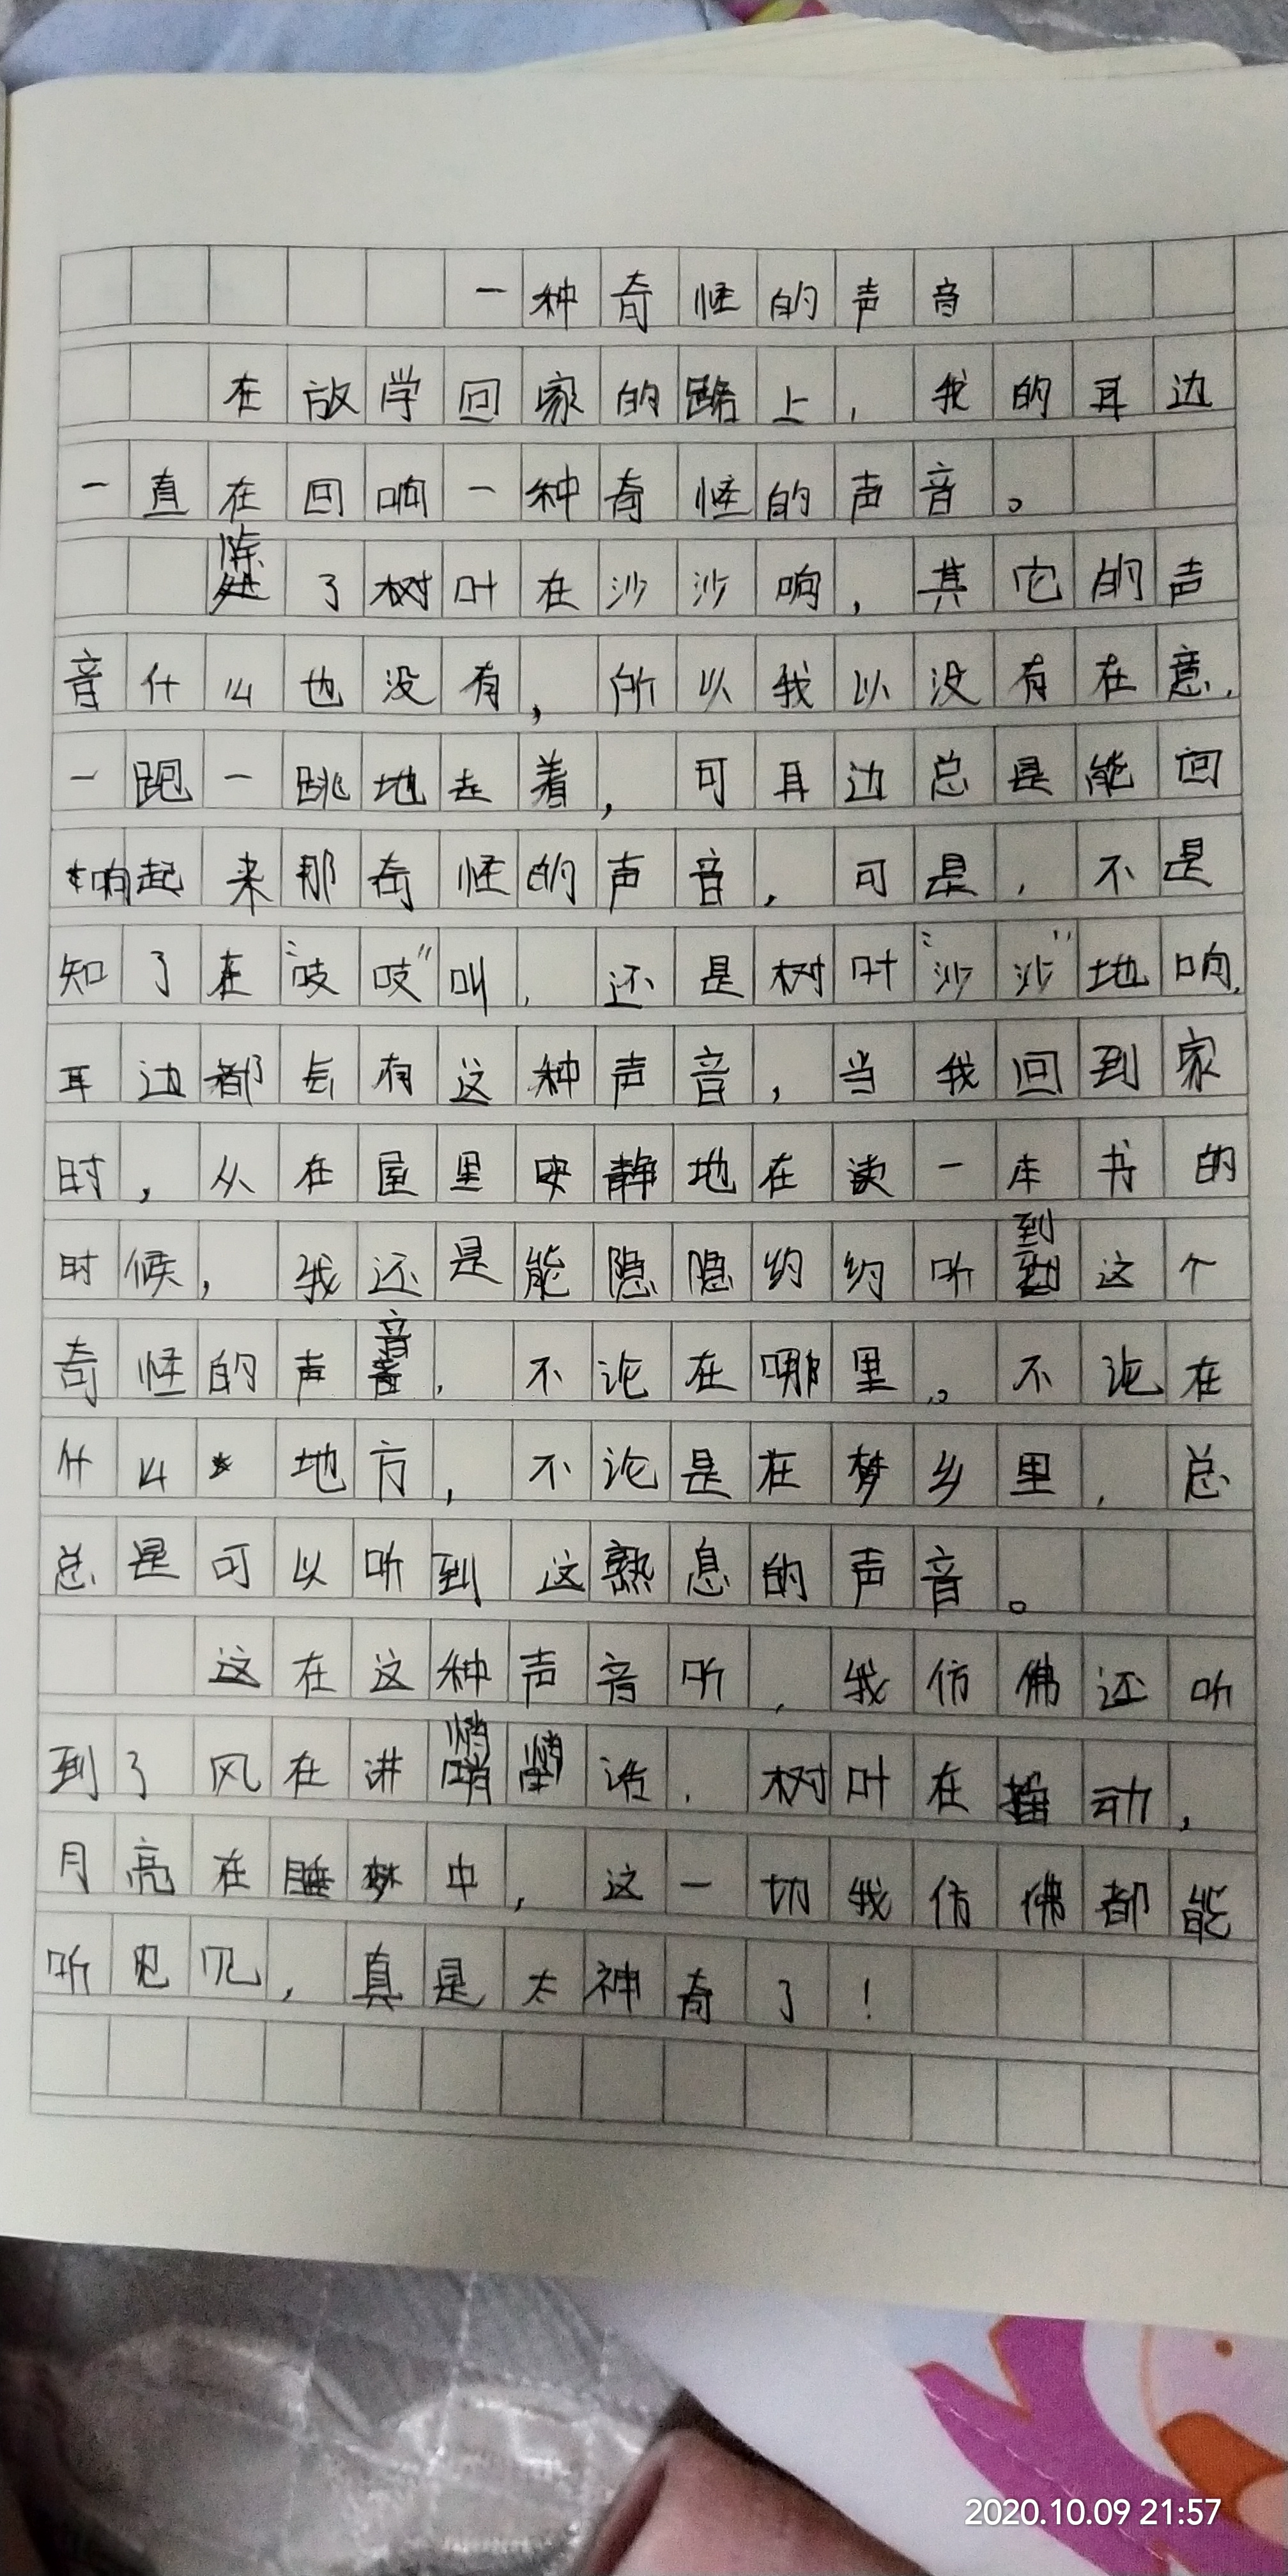 一种奇怪的声音
在放学回家的路上，我的耳边
一直在回响一种奇怪的声音。
除了树叶在沙沙响，其它的声
音什么也没有，所以我以没有在意，
一跑一跳地走着，可耳边总是能回
响起来那奇怪的声音，可是，不是
知了在“吱吱”叫，还是树叶“沙沙”地响，
耳边都长有这种声音，当我回到家
时，从在屋里安静地在读一本书的
时候，我还是能隐隐约约听到这个
奇怪的声音，不论在哪里。不论在
什么地方，不论是在梦乡里，总
总是可以听到这熟息的声音。
这在这种声音听，我仿佛还听
到了风在讲悄悄话，树叶在摇动，
月亮在睡梦中，这一切我仿佛都能
听见见，真是太神奇了！
2020.10.09 21:57